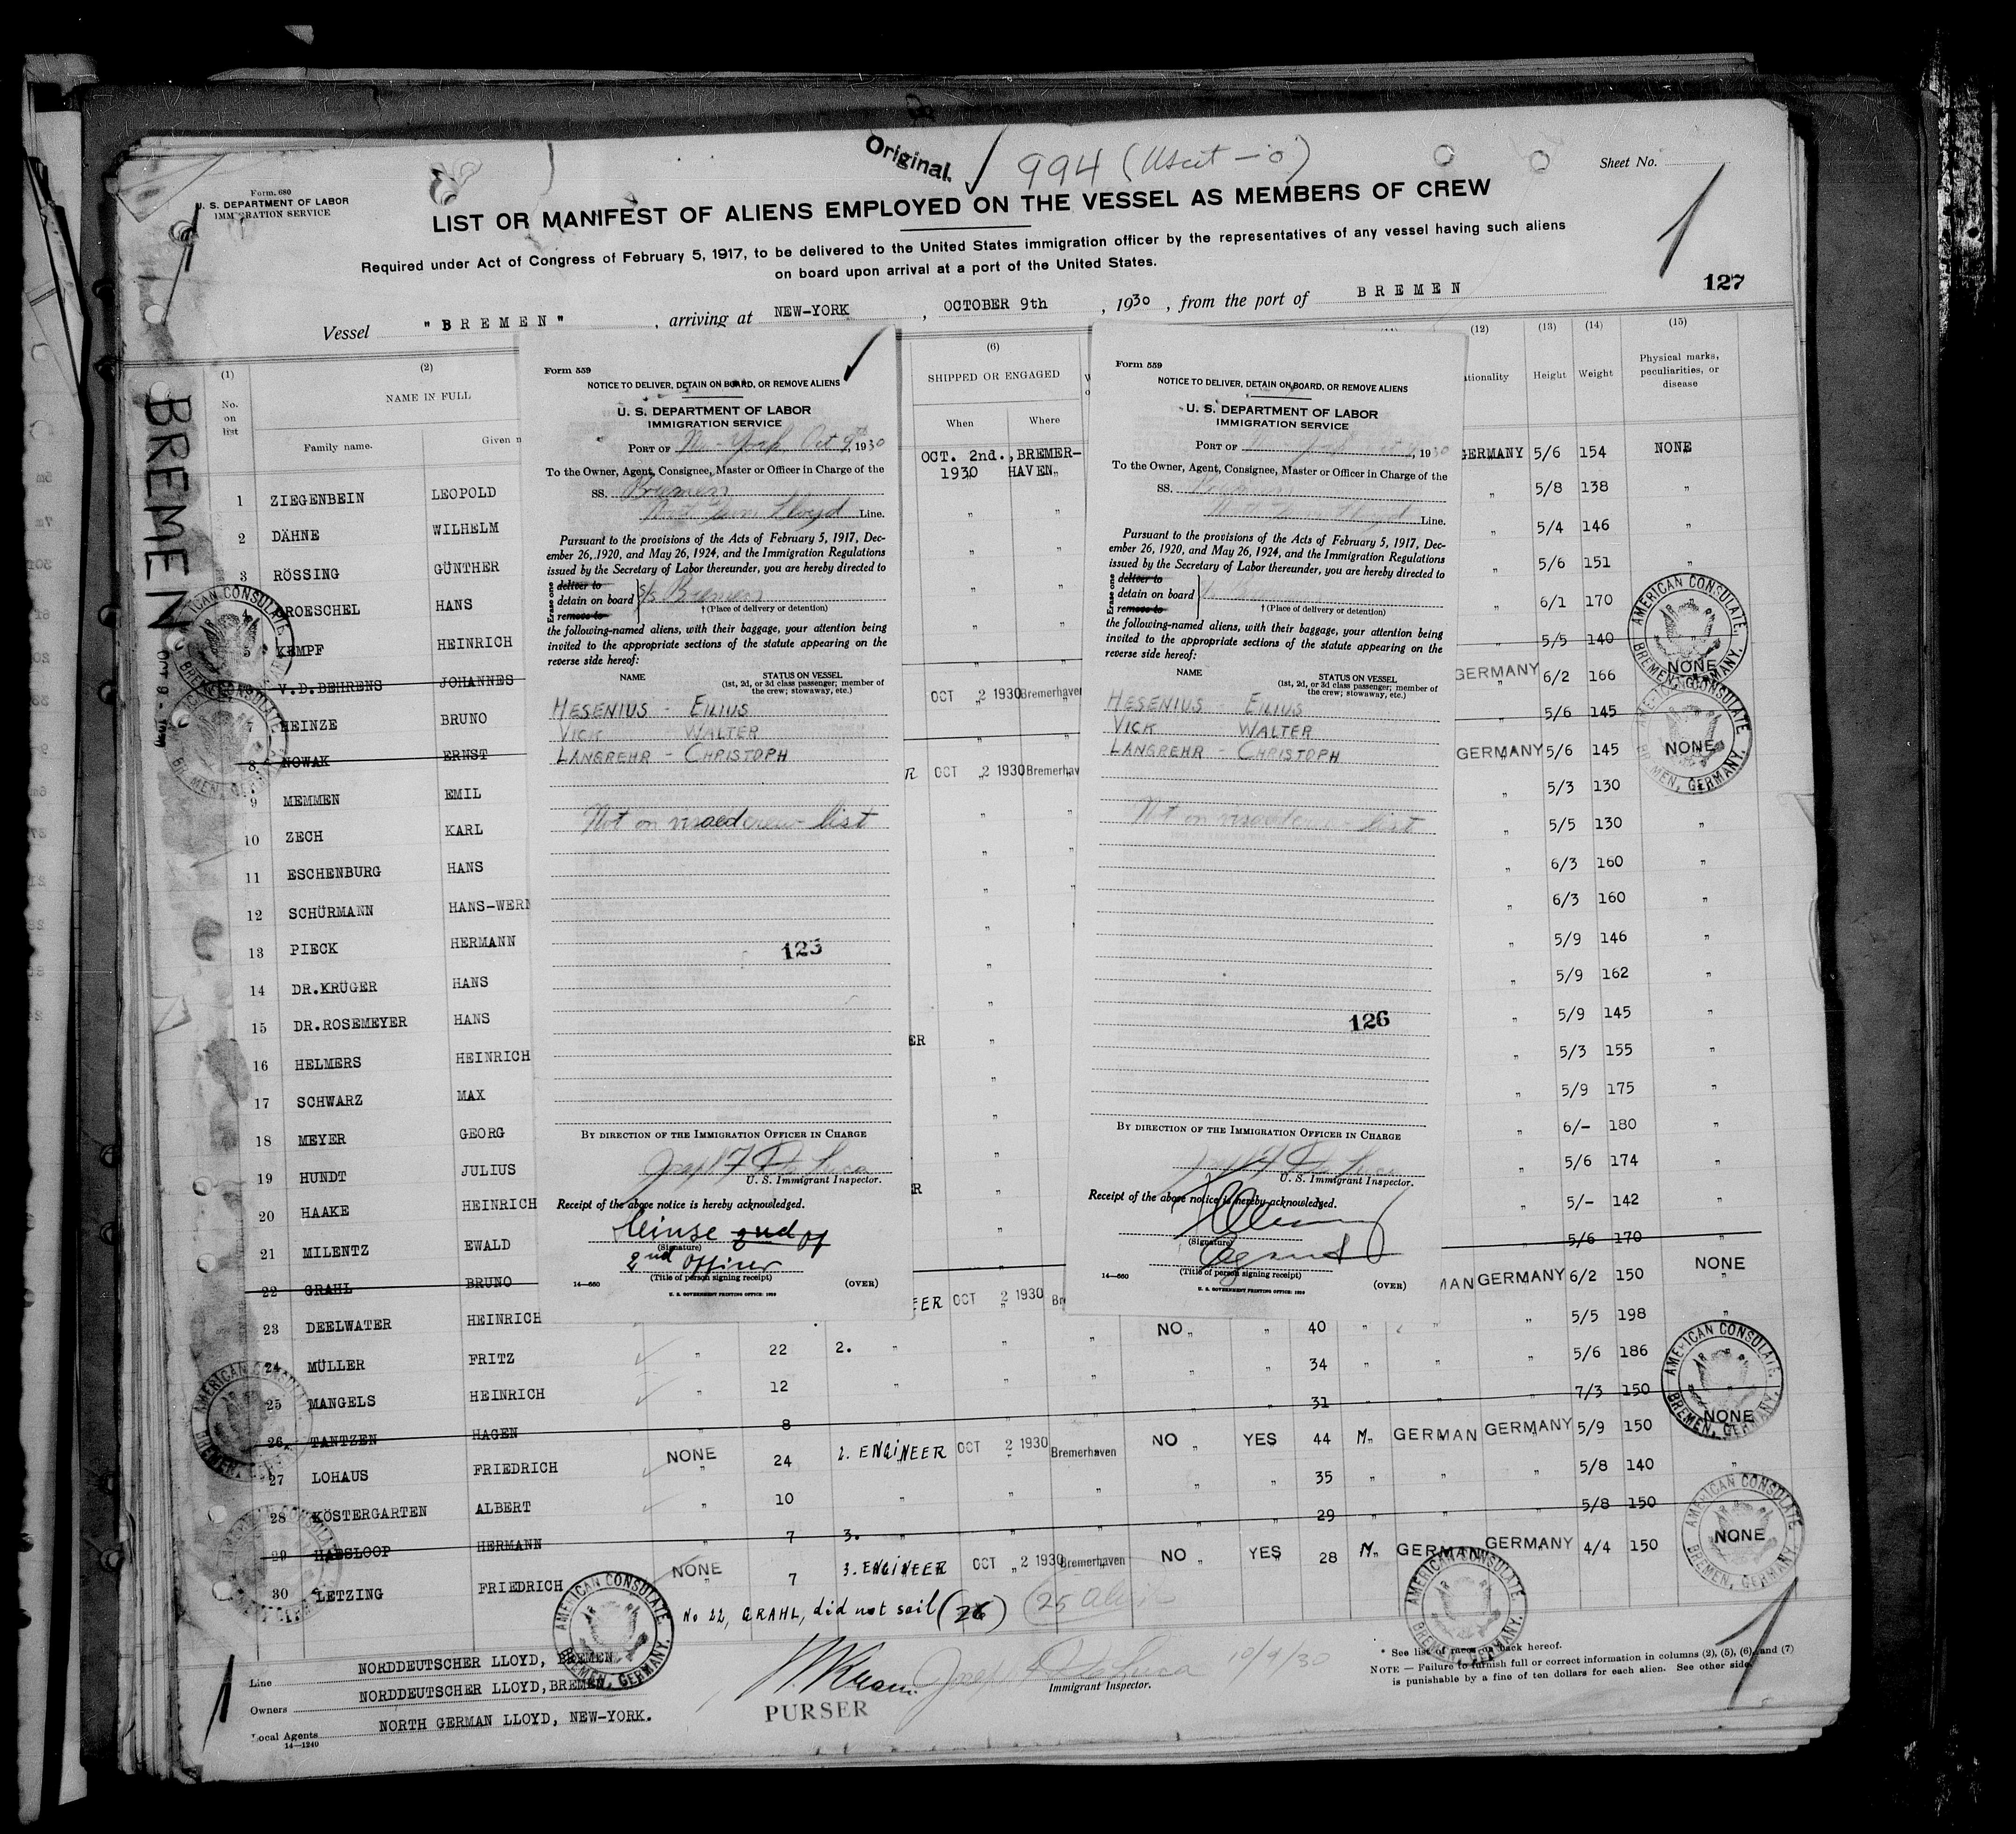 Original.
994 (
Sheet No.
Form. 680
U. S. DEPARTMENT OF LABOR
IMMIGRATION SERVICE
LIST OR MANIFEST OF ALIENS EMPLOYED ON THE VESSEL AS MEMBERS OF CREW
Required under Act of Congress of February 5, 1917, to be delivered to the United States immigration officer by the representatives of any vessel having such aliens
on board upon arrival at a port of the United States.
127
Vessel "BREMEN", arriving at NEW-YORK, OCTOBER 9th, 1930, from the port of BREMEN
BREMEN
OCT 9 -
(1) (2) (6) (12) (13) (14) (15)
No. on list
NAME IN FULL
Family name.
SHIPPED OR ENGAGED
When Where
Height Weight
Physical marks, peculiarities, or disease
1 ZIEGENBEIN LEOPOLD OCT. 2nd., 1930 BREMER-HAVEN GERMANY 5/6 154 NONE
2 DÄHNE WILHELM " " " 5/8 138 "
3 RÖSSING GÜNTHER " " " 5/4 146 "
ROESCHEL HANS " " " 5/6 151 "
5 KEMPF HEINRICH " " " 6/1 170
V.D.BEHRENS JOHANNES " " " 5/5 140 "
7 HEINZE BRUNO OCT 2 1930 Bremerhaven GERMANY 6/2 166 NONE
8 NOWAK ERNST " " 5/6 145
9 MEMMEN EMIL OCT 2 1930 Bremerhav GERMANY 5/6 145 NONE
10 ZECH KARL " " " 5/3 130
11 ESCHENBURG HANS " " 5/5 130 "
12 SCHÜRMANN HANS-WERN " " " 6/3 160 "
13 PIECK HERMANN " " 6/3 160 "
14 DR.KRÜGER HANS " " 5/9 146 "
15 DR.ROSEMEYER HANS " " 5/9 162 "
16 HELMERS HEINRICH " " 5/9 145 "
17 SCHWARZ MAX " " 5/3 155 "
18 MEYER GEORG " " 5/9 175 "
19 HUNDT JULIUS " " 6/- 180 "
20 HAAKE HEINRICH " " 5/6 174 "
21 MILENTZ EWALD " " 5/- 142 "
22 GRAHL BRUNO " 5/6 170 "
23 DEELWATER HEINRICH OCT 2 1930 GERMANY 6/2 150 NONE
24 MÜLLER FRITZ " 22 2. " " " NO " " 40 " " " 5/5 198 "
25 MANGELS HEINRICH " 12 " " " " " 34 " " " 5/6 186
26 TANTZEN HAGEN 8 " " " " " 31 " " " 7/3 150 "
27 LOHAUS FRIEDRICH NONE 24 2. ENGINEER OCT 2 1930 Bremerhaven NO YES 44 M GERMAN GERMANY 5/9 150 NONE
28 KÖSTERGARTEN ALBERT " 10 " " " " " 35 " " " 5/8 140 "
29 HABSLOOP HERMANN 7 3. " " " " " 29 " " " 5/8 150
30 LETZING FRIEDRICH NONE 7 3. ENGINEER OCT 2 1930 Bremerhaven NO YES 28 M GERMAN GERMANY 4/4 150 NONE
No 22, GRAHL, did not sail (26) (25 Aliens
Line NORDDEUTSCHER LLOYD, BREMEN
Owners NORDDEUTSCHER LLOYD, BREMEN,
Local Agents NORTH GERMAN LLOYD, NEW-YORK.
14—1240
PURSER
Joseph F De Luca 10/9/30
Immigrant Inspector.
* See list of races on back hereof.
NOTE — Failure to furnish full or correct information in columns (2), (5), (6), and (7)
is punishable by a fine of ten dollars for each alien. See other side.
AMERICAN CONSULATE, BREMEN, GERMANY.
AMERICAN CONSULATE, BREMEN, GERMANY.
AMERICAN CONSULATE, BREMEN, GERMANY.
AMERICAN CONSULATE, BREMEN, GERMANY.
AMERICAN CONSULATE, BREMEN, GERMANY.
AMERICAN CONSULATE, BREMEN, GERMANY.
AMERICAN CONSULATE, BREMEN, GERMANY.
AMERICAN CONSULATE, BREMEN, GERMANY.
AMERICAN CONSULATE, BREMEN, GERMANY.
AMERICAN CONSULATE, BREMEN, GERMANY.
Form 559
NOTICE TO DELIVER, DETAIN ON BOARD, OR REMOVE ALIENS
U. S. DEPARTMENT OF LABOR
IMMIGRATION SERVICE
PORT OF New-York Oct 9th, 1930
To the Owner, Agent, Consignee, Master or Officer in Charge of the
SS. Bremen
North Germ Lloyd Line.
Pursuant to the provisions of the Acts of February 5, 1917, Dec-
ember 26, 1920, and May 26, 1924, and the Immigration Regulations
issued by the Secretary of Labor thereunder, you are hereby directed to
Erase one
deliver to
detain on board S/s Bremen
remove to
† (Place of delivery or detention)
the following-named aliens, with their baggage, your attention being
invited to the appropriate sections of the statute appearing on the
reverse side hereof:
NAME STATUS ON VESSEL
(1st, 2d, or 3d class passenger; member of
the crew; stowaway, etc.)
HESENIUS - EILIUS
VICK WALTER
LANGREHR - CHRISTOPH
Not on visaed crew list
125
BY DIRECTION OF THE IMMIGRATION OFFICER IN CHARGE
Joseph F De Luca
U. S. Immigrant Inspector.
Receipt of the above notice is hereby acknowledged.
Heinse 2nd Of
(Signature)
2nd Officer
(Title of person signing receipt)
14—660 (OVER)
U. S. GOVERNMENT PRINTING OFFICE: 1929
Form 559
NOTICE TO DELIVER, DETAIN ON BOARD, OR REMOVE ALIENS
U. S. DEPARTMENT OF LABOR
IMMIGRATION SERVICE
PORT OF , 1930
To the Owner, Agent, Consignee, Master or Officer in Charge of the
SS. Bremen
North Germ Lloyd Line.
Pursuant to the provisions of the Acts of February 5, 1917, Dec-
ember 26, 1920, and May 26, 1924, and the Immigration Regulations
issued by the Secretary of Labor thereunder, you are hereby directed to
Erase one
deliver to
detain on board
remove to
† (Place of delivery or detention)
the following-named aliens, with their baggage, your attention being
invited to the appropriate sections of the statute appearing on the
reverse side hereof:
NAME STATUS ON VESSEL
(1st, 2d, or 3d class passenger; member of
the crew; stowaway, etc.)
HESENIUS - EILIUS
VICK WALTER
LANGREHR - CHRISTOPH
Not on visaed crew list
126
BY DIRECTION OF THE IMMIGRATION OFFICER IN CHARGE
Joseph F De Luca
U. S. Immigrant Inspector.
Receipt of the above notice is hereby acknowledged.
(Signature)
Agent
(Title of person signing receipt)
14—660 (OVER)
U. S. GOVERNMENT PRINTING OFFICE: 1929